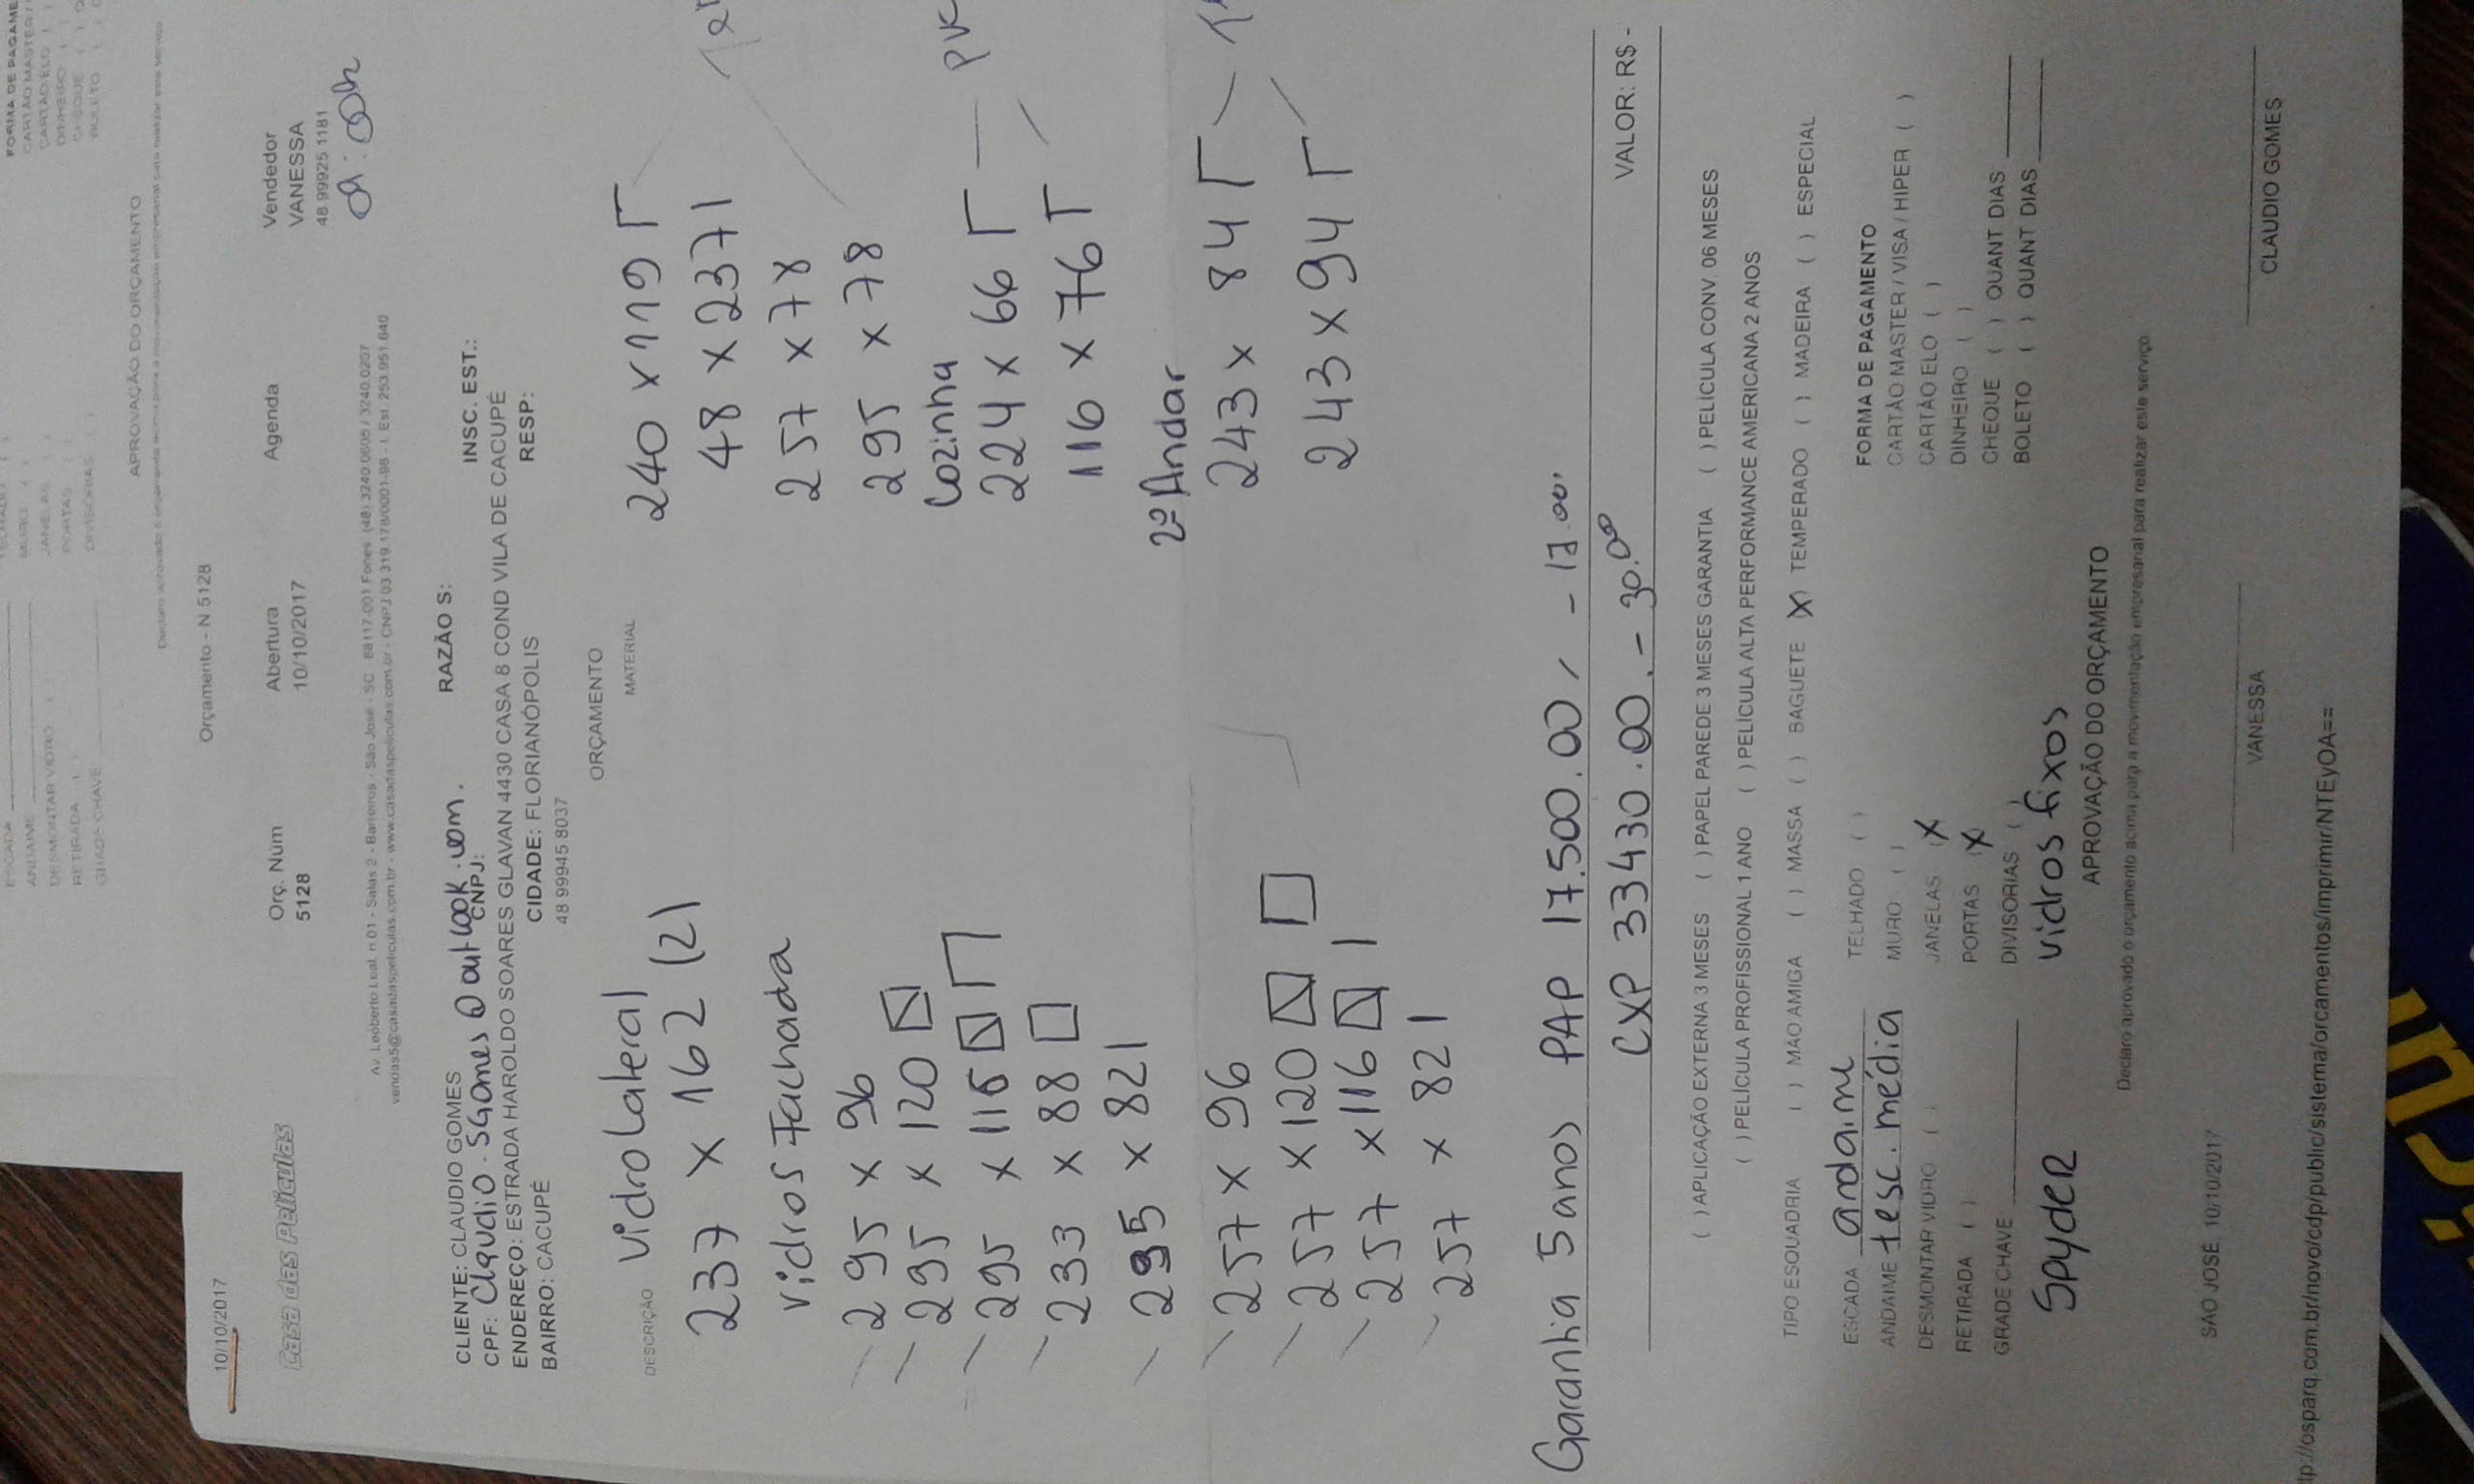 10/10/2017
Orçamento - N 5128
Casa das Películas
Orç. Núm
5128
Abertura
10/10/2017
Agenda
Vendedor
VANESSA
48 99925 1181
Av. Leoberto Leal, n 01 - Salas 2 - Barreiros - São José - SC 88117-001 Fones: (48) 3240.0605 / 3240.0207
vendas5@casadaspeliculas.com.br - www.casadaspeliculas.com.br - CNPJ 03.319.178/0001-98 - I. Est. 253.951.640
CLIENTE: CLAUDIO GOMES RAZÃO S: INSC. EST.:
CPF: Claudio.SGomes@outlook.com. CNPJ:
ENDEREÇO: ESTRADA HAROLDO SOARES GLAVAN 4430 CASA 8 COND VILA DE CACUPÉ
BAIRRO: CACUPÉ CIDADE: FLORIANÓPOLIS RESP:
48 99945 8037
ORÇAMENTO
DESCRIÇÃO MATERIAL
Vidro Lateral 240 x 119
237 x 162 (2) 48 x 237
Vidros Fachada 257 x 78
295 x 96 295 x 78
295 x 120 Cozinha
295 x 116 224 x 66 PVC
233 x 88 116 x 76
295 x 82 2º Andar
257 x 96 243 x 84
257 x 120 243 x 94
257 x 116
257 x 82
Garantia 5 anos PAP 17.500.00
CXP 33430.00. - 30.00
VALOR: R$ -
( ) APLICAÇÃO EXTERNA 3 MESES ( ) PAPEL PAREDE 3 MESES GARANTIA ( ) PELICULA CONV. 06 MESES
( ) PELÍCULA PROFISSIONAL 1 ANO ( ) PELÍCULA ALTA PERFORMANCE AMERICANA 2 ANOS
TIPO ESQUADRIA ( ) MÃO AMIGA ( ) MASSA ( ) BAGUETE (X) TEMPERADO ( ) MADEIRA ( ) ESPECIAL
ESCADA andaime
ANDAIME t esc. média
DESMONTAR VIDRO ( )
RETIRADA ( )
GRADE CHAVE
Spyder
TELHADO ( )
MURO ( )
JANELAS (X
PORTAS (X
DIVISORIAS ( )
Vidros fixos
FORMA DE PAGAMENTO
CARTÃO MASTER / VISA / HIPER ( )
CARTÃO ELO ( )
DINHEIRO ( )
CHEQUE ( ) QUANT DIAS:
BOLETO ( ) QUANT DIAS
APROVAÇÃO DO ORÇAMENTO
Declaro aprovado o orçamento acima para a movimentação empresarial para realizar este serviço
SÃO JOSÉ, 10/10/2017
VANESSA
CLAUDIO GOMES
tp://osparq.com.br/novo/cdp/public/sistema/orcamentos/imprimir/NTEyOA==
ESCADA
ANDAIME
DESMONTAR VIDRO
RETIRADA ( )
GRADE CHAVE
MURO ( )
JANELAS
PORTAS
DIVISORIAS
FORMA DE PAGAME
CARTÃO MASTER /
CARTÃO ELO (
DINHEIRO (
CHEQUE (
BOLETO (
APROVAÇÃO DO ORÇAMENTO
Declaro aprovado o orçamento acima para a movimentação empresarial para realizar este serviço